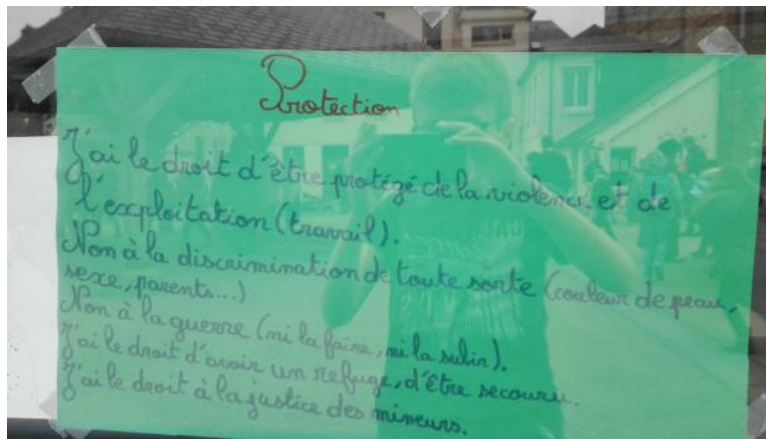 Protection
J'ai le droit d'être protégé de la violence et de
l'exploitation (travail).
Non à la discrimination de toute sorte (couleur de peau,
sexe, parents...)
Non à la guerre (ni la faire, ni la subir).
J'ai le droit d'avoir un refuge, d'être secouru.
J'ai le droit à la justice des mineurs.